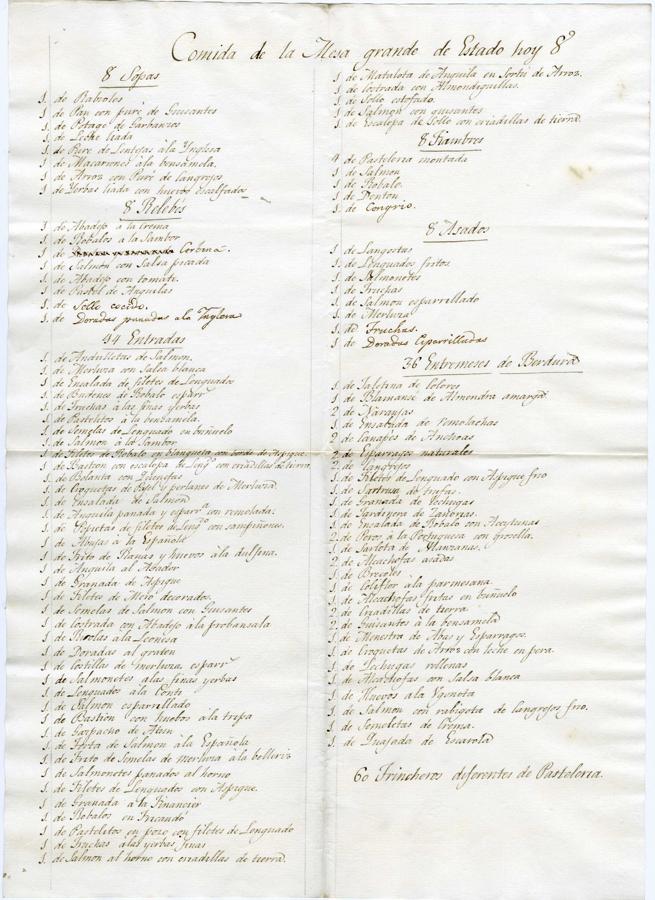 Comida de la Mesa grande de Estado hoy 8º
8 Sopas
1. de Rabioles
1. de Pan con puré de Guisantes
1. de Potage de Garbanzos
1. de Leche liada
1. de Puré de Lentejas à la Inglesa
1. de Macarrones à la bensamela.
1. de Arroz con Puré de langrejos
1. de Yerbas liada con huevos escalfados
8 Relebés
1 de Abadejo à la crema
1. de Robalos à la Sambor
1. de Corbina.
1. de Salmón con Salsa picada
1. de Abadejo con tomate.
1. de Pastel de Anguilas
1. de Sollo cocido.
1. de Doradas panadas a la Ynglesa
44 Entradas
1. de Andulletas de Salmon.
1. de Merluza con Salsa blanca
1. de Ensalada de filetes de Lenguados
1. de Budenes de Robalo esparr
1. de Truchas a las finas yerbas
1. de Pastelitos à la bensamela.
1. de Semelas de Lenguado en buñuelo
1. de Salmon à la Sambor
1. de Filetes de Robalo en blanqueta con borde de Aspique.
1. de Bastion con escalopa de Leng.º con criadillas de tierra
1. de Bolanta con
1. de Coquetas de y perlanes de Merluza.
1. de Ensalada de Salmon
1. de Anguila panada y esparr.ª con remolada:
1. de Popietas de filetes de Leng.do con sampiñones.
1. de à la Española
1. de Frito de Ranas y huevos à la dulfina.
1. de Anguila al Asador
1. de Granada de Aspique
1. de Filetes de Mero decorados.
1. de Semelas de Salmon con Guisantes
1. de Costrada con Abadejo à la probansala
1. de à la Leonesa
1. de Doradas al graten
1. de Costillas de merluza esparr.s
1. de Salmonetes a las finas yerbas
1. de Lenguados à la Conti
1. de Salmon esparrillado
1. de Bastion con huebos à la tripa
1. de Gaspacho de
1. de Torta de Salmon à la Española
1. de Frito de Semelas de merluza a la
1. de Salmonetes panados al horno
1. de Filetes de Lenguados con Aspique.
1. de Granada à la Financier
1. de Robalos en Fricandó
1. de Pastelitos en pozo con filetes de Lenguado
1. de Truchas a las yerbas finas
1. de Salmon al horno con criadillas de tierra.
1 de Matalota de Anguila en Sortú de Arroz.
1. de Costrada con Almondiguillas.
1. de Sollo estofado.
1. de Salmon con guisantes.
1. de Escalopa de Sollo con criadillas de tierra
8 Fiambres
4 de Pasteleria montada
1 de Salmon
1. de Robalo.
1. de Denton
1. de Congrio.
8 Asados
1 de Langostas
1. de Lenguados fritos.
1. de Salmonetes
1. de Truchas
1. de Salmon esparrillado
1. de Merluza
1. de Truchas.
1. de Doradas Esparrilladas
36 Entremeses de Berdura
1. de Galetina de Colores
1. de Blamansé de Almendra amarga
2 de Naranjas
1. de Ensalada de remolachas
2. de Canapés de Anchoas
2. de Esparragos naturales
2. de Cangrejos
1. de Filetes de Lenguado con Aspique frio
1. de Sartrusa de trufas.
1. de Granada de Lechugas
1. de Jardinera de Zanorias.
1. de Ensalada de Robalo con Aceytunas
2. de Peros à la Portuguesa con grosella.
1. de Sarlota de Manzanas.
2. de Alcachofas asadas
1. de Brecoles
1. de Coliflor à la parmesana.
1. de Alcachofas fritas en buñuelo
2. de Criadillas de tierra
2. de Guisantes à la bensamela
1. de Menestra de Abas y Esparragos.
1. de Croquetas de Arroz con leche en pera.
1. de Lechugas rellenas
1. de Alcachofas con Salsa blanca
1. de Huevos a la
1. de Salmon con rabigota de langrejos frio.
1. de Semoletas de Crema.
1. de Quajada de Escarola
60 Trincheros diferentes de Pasteleria.